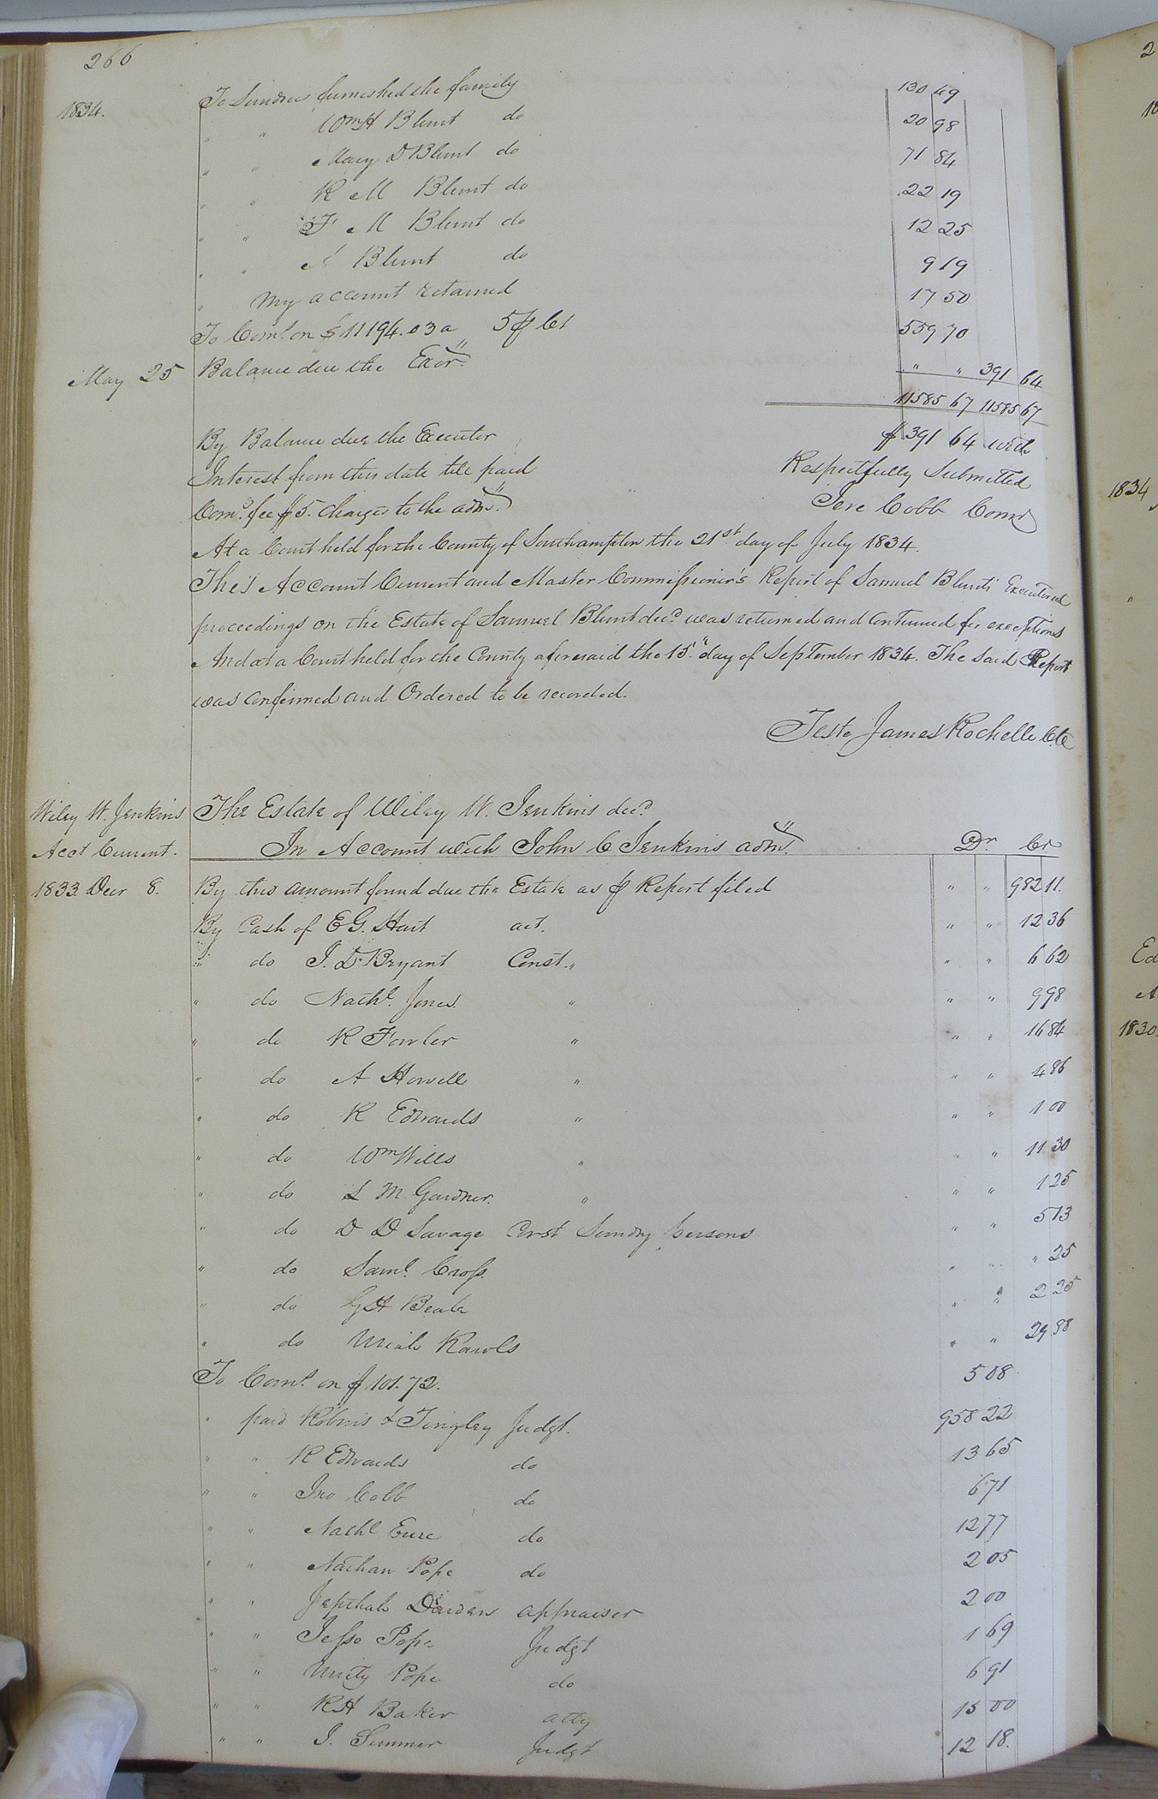 266
1834. To Sundries furnished the family 130 49
" " Wm H Blunt do 20 98
" " Mary D Blunt do 71 84
" " R M Blunt do 22 19
" " F M Blunt do 12 25
" " A Blunt do 9 19
" My account returned 17 50
To Coms. on $11194.03 a 5 ⅌ Ct 559 70
May 25 Balance due the Exor. " " 391 64
11585 67 11585 67
By Balance due the Executor $391 64 with
Interest from this date till paid Respectfully Submitted
Coms. fee $5. charged to the adm. Jere Cobb Comr
At a Court held for the County of Southampton the 21st. day of July 1834.
This Account Current and Master Commissioner's Report of Samuel Blunts Executors
proceedings on the Estate of Samuel Blunt decd. was returned and Continued for exceptions
And at a Court held for the County aforesaid the 15" day of September 1834. The Said Report
was Confirmed and Ordered to be recorded.
Teste James Rochelle Clk
Wiley W. Jenkins The Estate of Wiley W. Jenkins decd.
Acct Current. In Account with John C Jenkins adm. Dr. Cr
1833 Decr 8. By this amount found due the Estate as ⅌ Report filed " " 982 11
By Cash of E G. Hart act. " " 12 36
" do J. D. Bryant Const. " " " 6 62
" do Nathl. Jones " " " 9 98
" do R Fowler " " " 16 84
" do A Howell " " " 4 86
" do R Edwards " " " 1 00
" do Wm Wills " " " 11 30
" do L M Gardner. " " " 1 25
" do D D Savage Const Sundry persons " " 5 13
" do Saml. Cross " " " 25
" do G H Beale " " 2 25
" do Uriah Rawls " " 29 98
To Coms. on $101.72. 5 08
" paid Robins & Tingley Judgt. 958 22
" " R Edwards do 13 65
" " Jno Cobb do 6 71
" " Nathl Eure do 12 77
" " Nathan Pope do 2 05
" " Jepthah Darden appraiser 2 00
" " Jesse Pope Judgt 1 69
" " Unity Pope do 6 91
" " R H Baker atty 15 00
" " J. Sumner Judgt 12 18.
2
18
1834
Ed
A
1830.